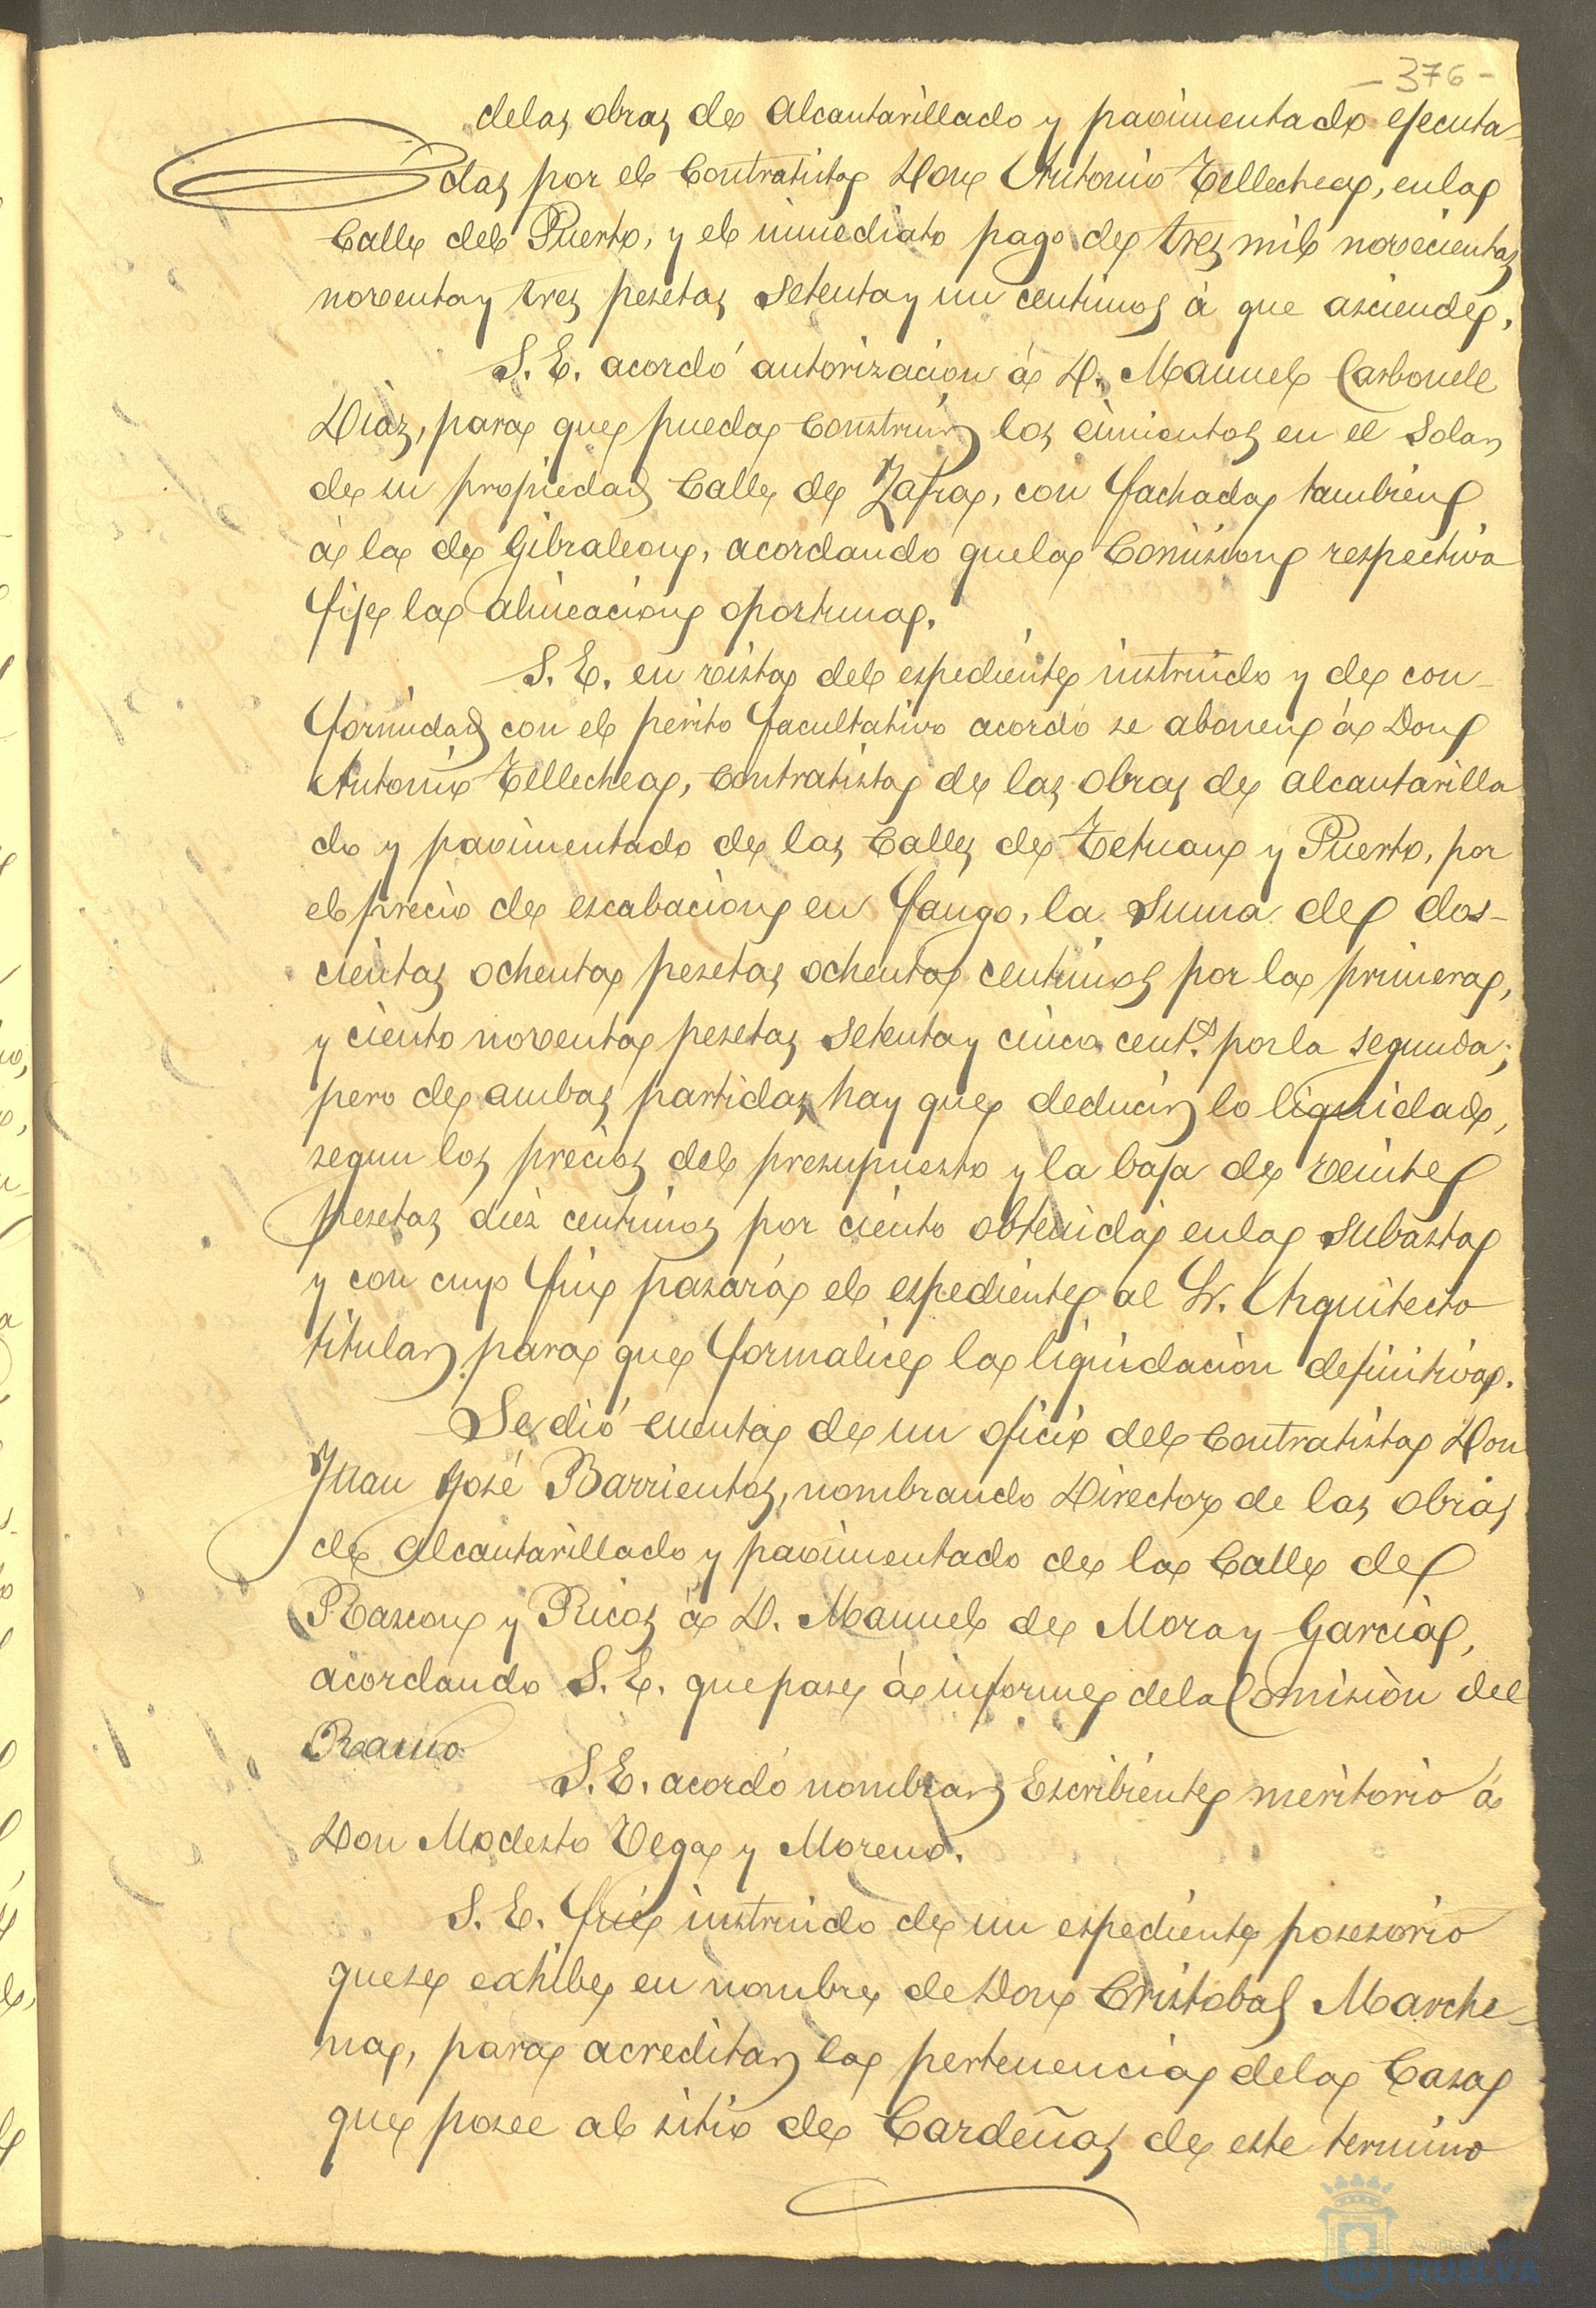 - 376 -
de las obras de alcantarillado y pavimentado ejecuta-
das por el Contratista Don Antonio Tellechea, en la
Calle del Puerto, y el inmediato pago de tres mil novecientas
noventa y tres pesetas setenta y un centimos á que asciende.
S. E. acordó autorizacion á D. Manuel Carbonell
Diaz, para que pueda construir los cimientos en el solar
de su propiedad Calle de Zafra, con fachada tambien
á la de Gibraleon, acordando que la Comision respectiva
fije la alineacion oportuna.
S. E. en vista del espediente instruido y de con-
formidad con el perito facultativo acordó se abonen á Don
Antonio Tellechea, contratista de las obras de alcantarilla
do y pavimentado de las Calles de Tetuan y Puerto, por
el precio de escabacion en fango, la suma de dos-
cientas ochenta pesetas ochenta centimos por la primera,
y ciento noventa pesetas setenta y cinco cent.s por la segunda;
pero de ambas partidas hay que deducir lo liquidado,
segun los precios del presupuesto y la baja de veinte
pesetas diez centimos por ciento obtenida en la subasta
y con cuyo fin pasará el espediente al Sr. Arquitecto
titular para que formalice la liquidacion definitiva.
Se dió cuenta de un oficio del contratista Don
Juan José Barrientos, nombrando Director de las obras
de alcantarillado y pavimentado de la Calle de
Rascon y Ricos á D. Manuel de Mora y Garcia,
acordando S. E. que pase á informe de la Comision del
Ramo
S. E. acordó nombrar Escribiente meritorio á
Don Modesto Vega y Moreno.
S. E. fué instruido de un espediente posesorio
que se exhibe en nombre de Don Cristobal Marche-
na, para acreditar la pertenencia de la Casa
que posee al sitio de Cardeñas de este termino
Ayuntamiento de
HUELVA